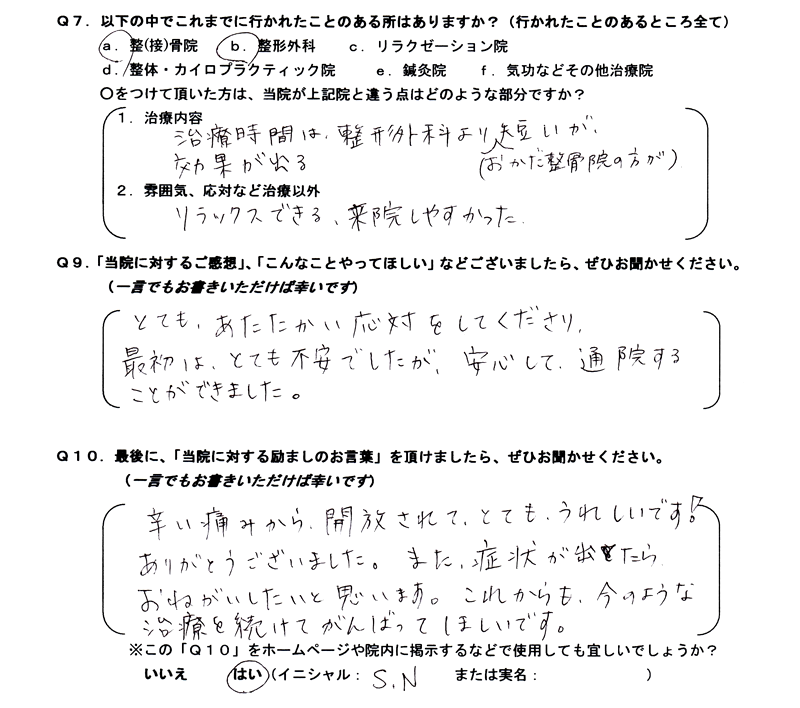 Q7．以下の中でこれまでに行かれたことのある所はありますか？（行かれたことのあるところ全て）
a．整(接)骨院　b．整形外科　c．リラクゼーション院
d．整体・カイロプラクティック院　e．鍼灸院　f．気功などその他治療院
〇をつけて頂いた方は、当院が上記院と違う点はどのような部分ですか？
1．治療内容
治療時間は、整形外科より短いが、
効果が出る　（おかだ整骨院の方が）
2．雰囲気、応対など治療以外
リラックスできる、来院しやすかった．
Q9．「当院に対するご感想」、「こんなことやってほしい」などございましたら、ぜひお聞かせください。
（一言でもお書きいただけば幸いです）
とても、あたたかい応対をしてくださり、
最初は、とても不安でしたが、安心して、通院する
ことができました。
Q10．最後に、「当院に対する励ましのお言葉」を頂けましたら、ぜひお聞かせください。
（一言でもお書きいただけば幸いです）
辛い痛みから、開放されて、とても、うれしいです！
ありがとうございました。また、症状が出たら
おねがいしたいと思います。これからも、今のような
治療を続けてがんばってほしいです。
※この「Q10」をホームページや院内に掲示するなどで使用しても宜しいでしょうか？
いいえ　はい（イニシャル：S.N　または実名：　）